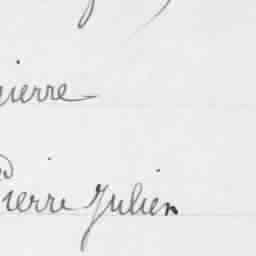 Pierre
Pierre Julien